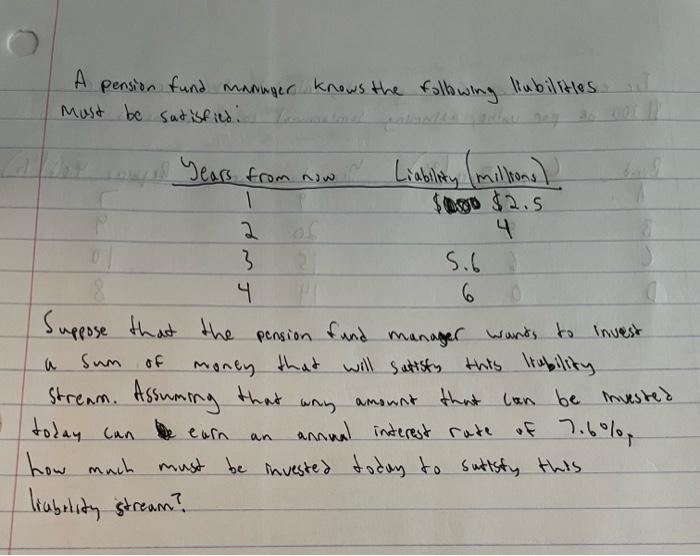 A pension fund manager knows the following liabilities
must be satisfied:
Years from now Liability (millions)
1 $2.5
2 4
3 5.6
4 6
Suppose that the pension fund manager wants to invest
a sum of money that will satisfy this liability
stream. Assuming that any amount that can be invested
today can earn an annual interest rate of 7.6%,
how much must be invested today to satisfy this
liability stream?